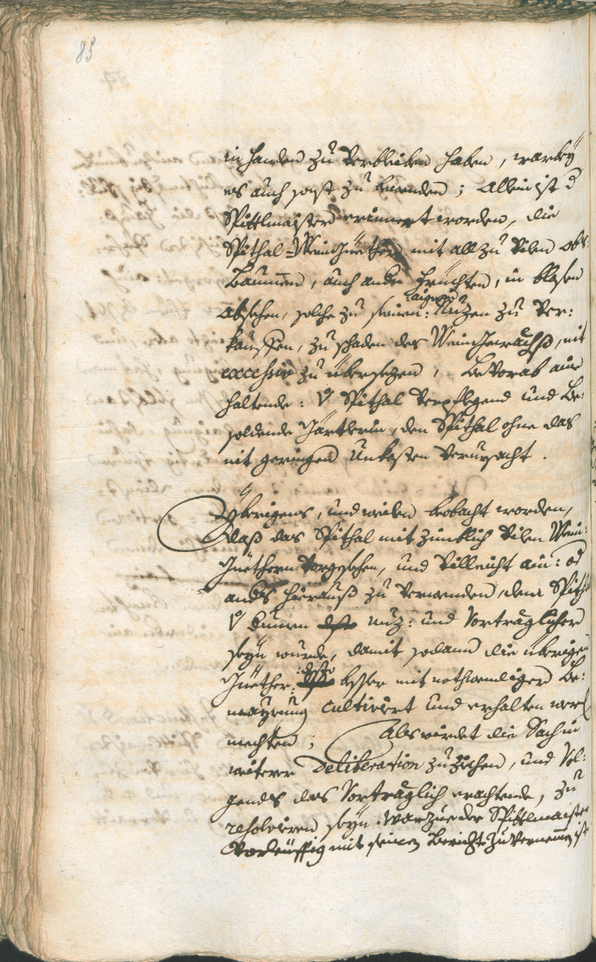 85
in handen zu verbleiben haben, warbey
es auch sonst zu bewenden; Allein ist d
Spittlmaister erinnert worden, die
Spithal-Weingüether mit allzu vilen obs:
Baumen, auch ander früchten, in blossen
absehen, solche zu seinen: aignen Nuzen zu ver:
kauffen, zu schaden des Weingewächß, nit
excessive zu übersezen, bevorab aine
haltende: V Spithal verpflegend und be:
soldende Gärtlerin, den Spithal ohne das
nit geringen Unkosten verursacht.
Übrigens, und weilen beobacht worden,
daß das Spithal mit zimblich vilen Wein:
Güethern vorgesehen, und villeicht ain: od
anders hierauß zu verwenden, dem Spithal
nuz: und vorträglicher
seyn wurde, damit sodann die übrigen
Güether desto besser mit nothwendiger be:
mayrung cultivirt und erhalten werd
mechten; Als wirdet die Sach in
weitere Deliberation zu ziehen, und vol:
gends das vorträglich erachtende, zu
resolviren seyn. Warzue der Spittlmaister
vorleuffig mit seinen Bericht zu vernemen ist